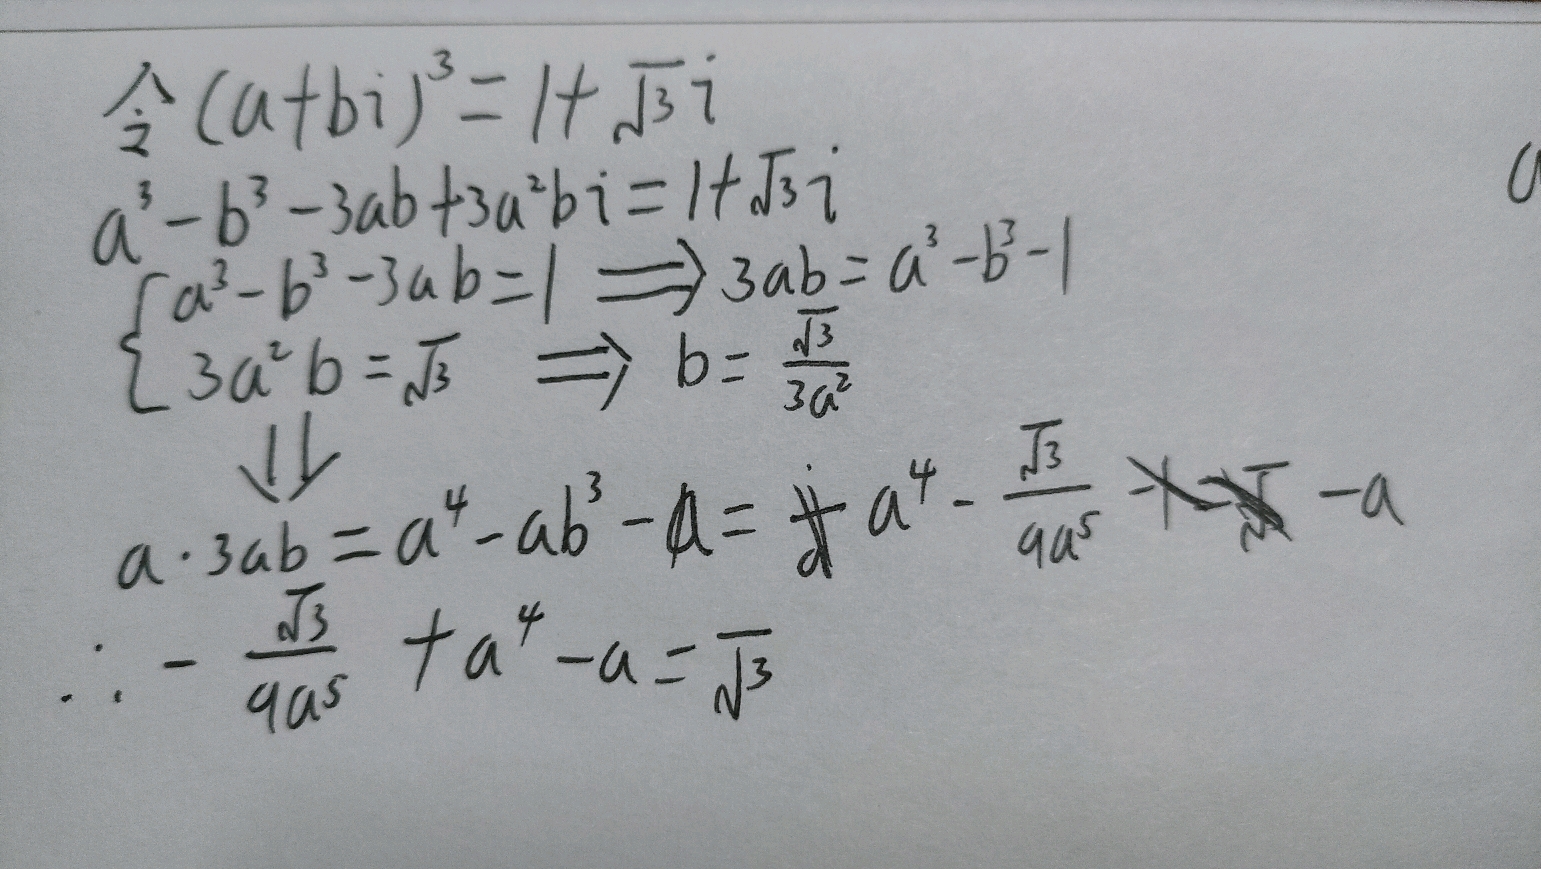 令(a+bi)³=1+√3i
a³-b³-3ab+3a²bi=1+√3i
{a³-b³-3ab=1 ⟹ 3ab=a³-b³-1
3a²b=√3 ⟹ b=√3/3a²
⇓
a·3ab=a⁴-ab³-a=a⁴-√3/9a⁵-a
∴-√3/9a⁵+a⁴-a=√3